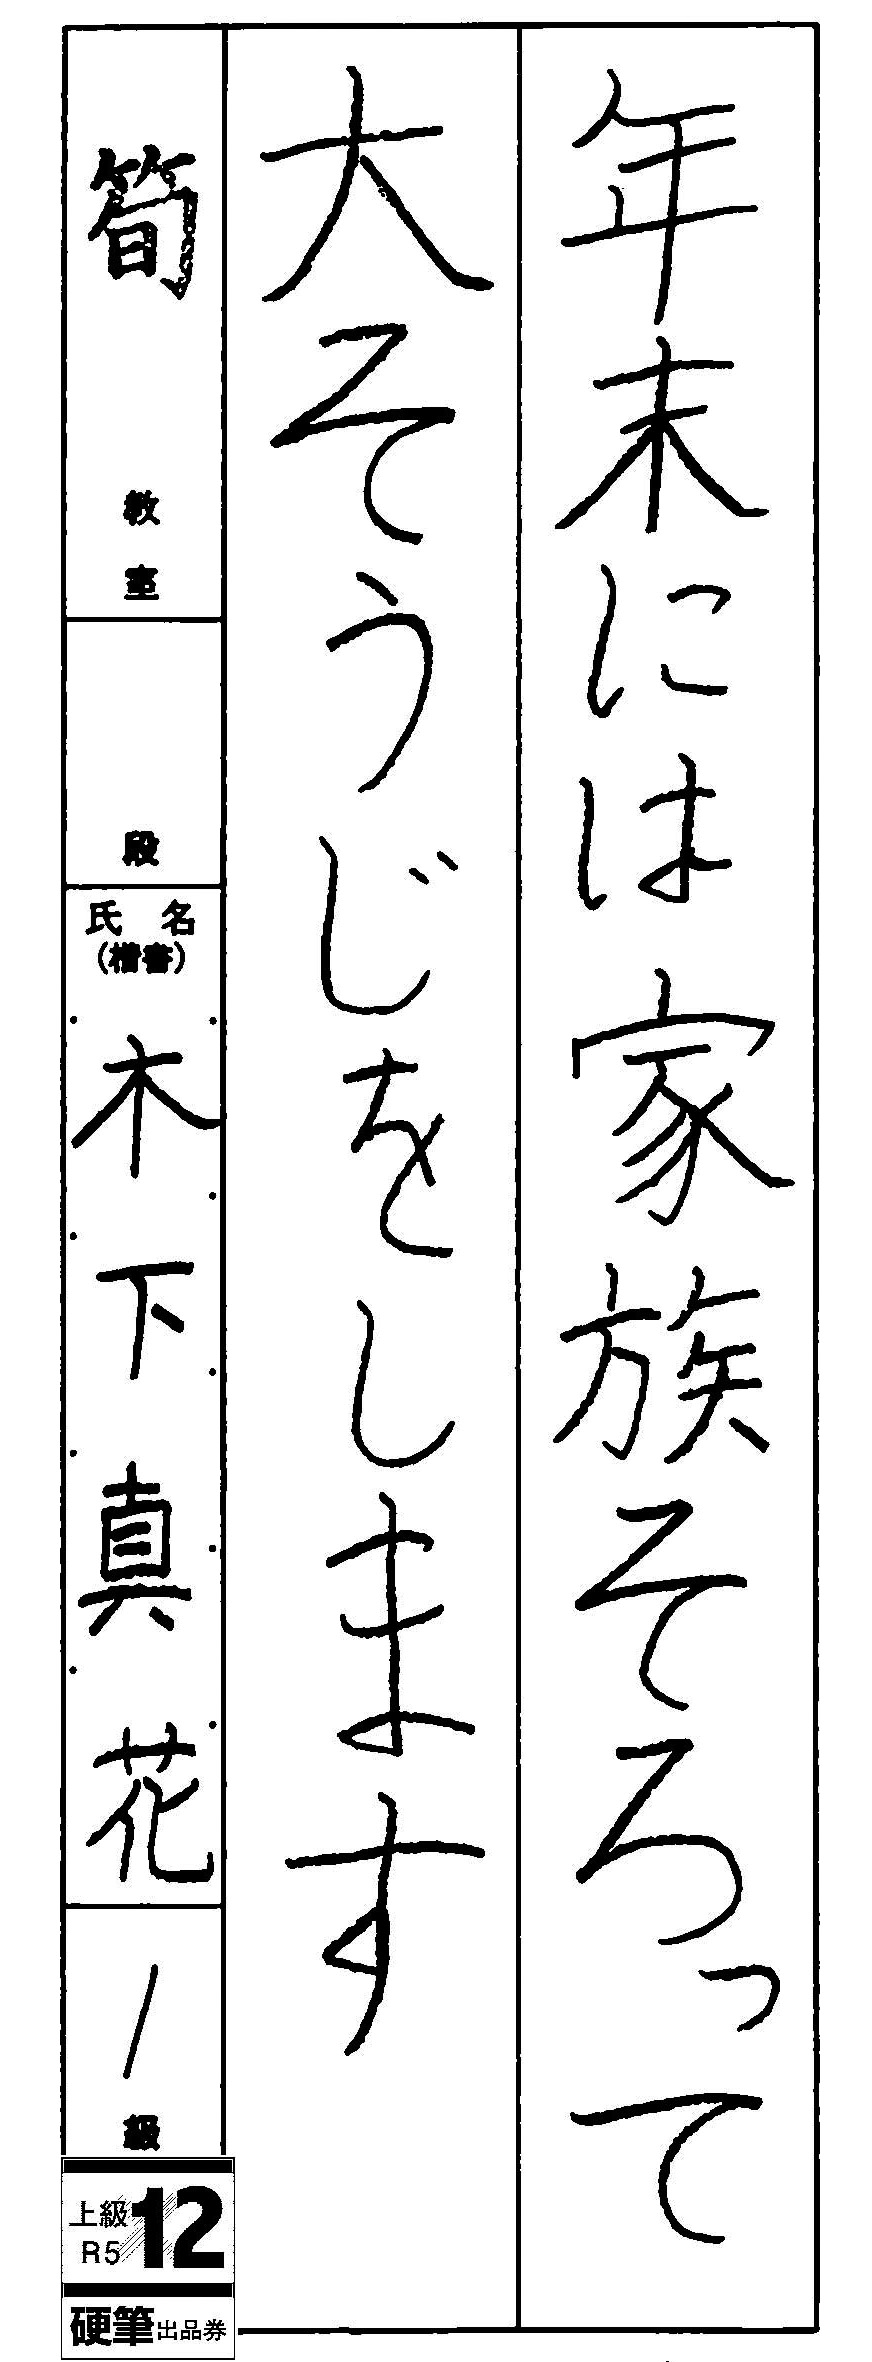 年末には家族そろって
大そうじをします
筍教室
段
氏名
（楷書）
木下真花
1級
上級
R5
12
硬筆出品券